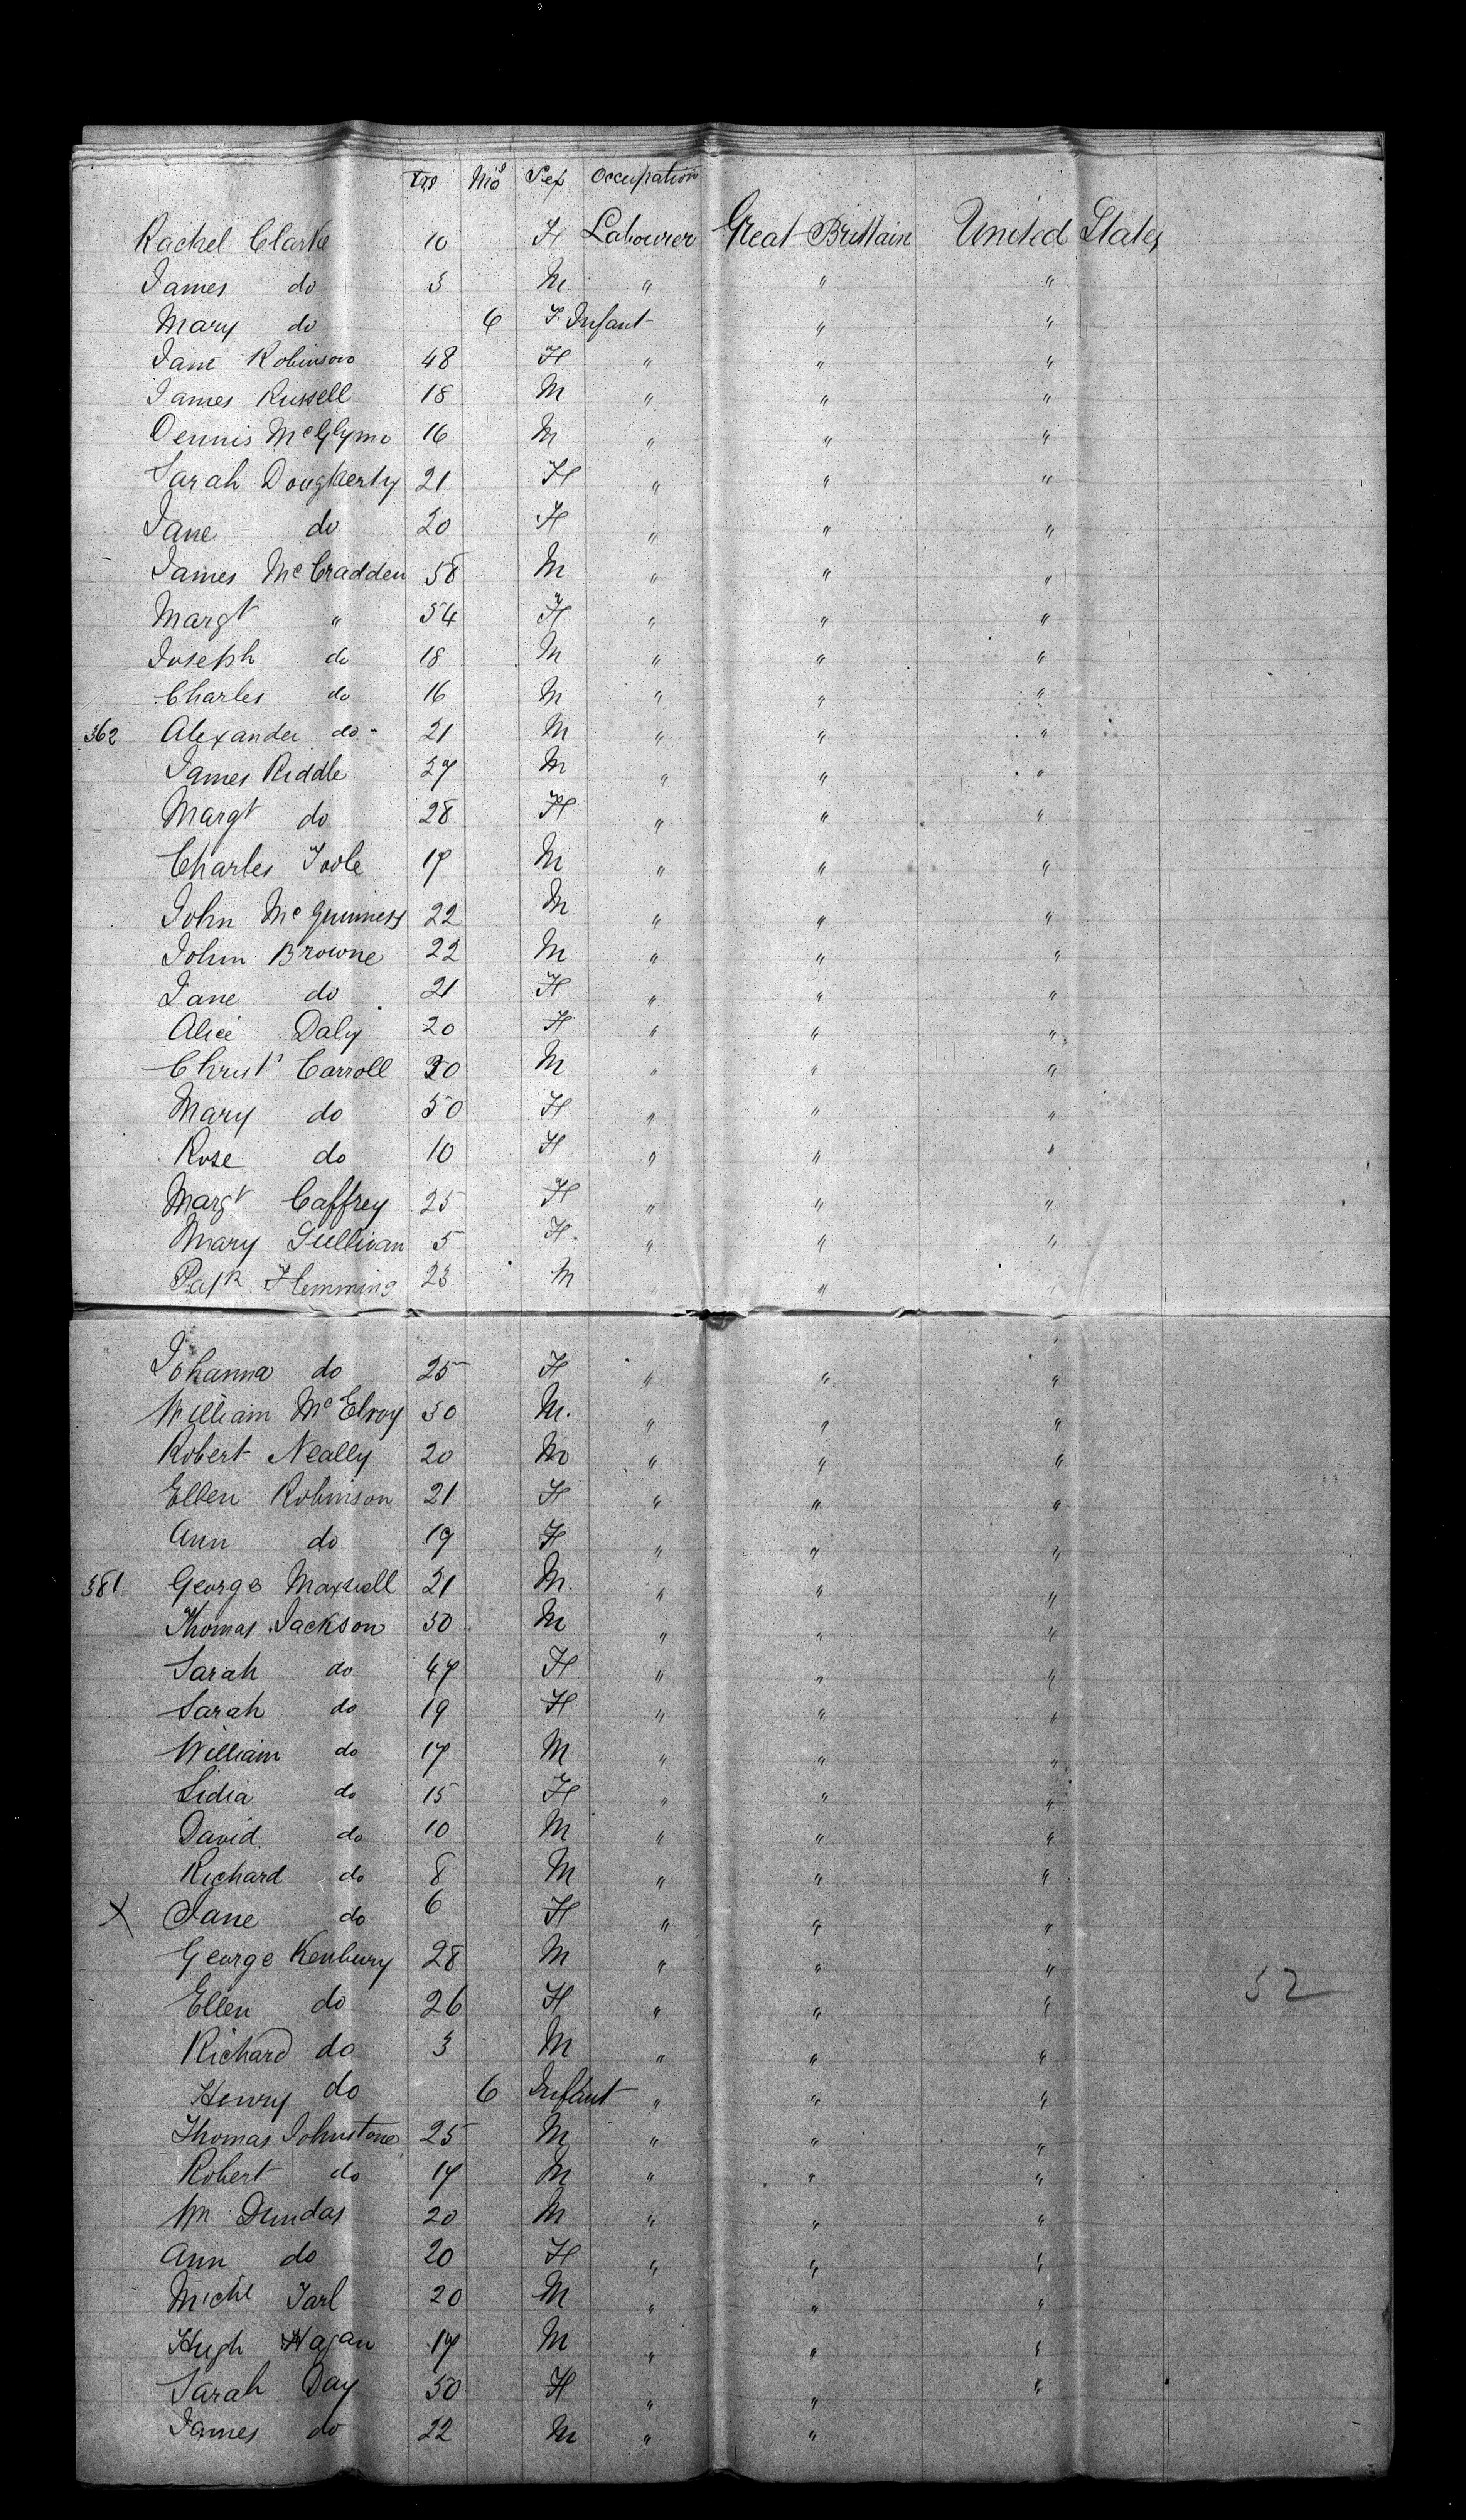 Yrs Mos Sex Occupation
Rachel Clarke 10 F Labourer Great Brittain United States
James do 3 M " " "
Mary do 6 F. Infant " "
Jane Robinson 48 F " " "
James Russell 18 M " " "
Dennis McGlynn 16 M " " "
Sarah Dougherty 21 F " " "
Jane do 20 F " " "
James McCradden 58 M " " "
Margt " 54 F " " "
Joseph do 18 M " " "
Charles do 16 M " " "
362 Alexander do 21 M " " "
James Riddle 27 M " " "
Margt do 28 F " " "
Charles Toole 17 M " " "
John McGuinness 22 M " " "
John Browne 22 M " " "
Jane do 21 F " " "
Alice Daly 20 F " " "
Christr Carroll 30 M " " "
Mary do 50 F " " "
Rose do 10 F " " "
Margt Caffrey 25 F " " "
Mary Sullivan 5 F. " " "
Patk Flemming 23 M " "
Johanna do 25 F " " "
William McElroy 30 M. " " "
Robert Neally 20 M " " "
Ellen Robinson 21 F " " "
Ann do 19 F " " "
381 George Maxwell 21 M. " " "
Thomas Jackson 50 M " " "
Sarah do 47 F " " "
Sarah do 19 F " " "
William do 17 M " " "
Lidia do 15 F " " "
David do 10 M " " "
Richard do 8 M " " "
X Jane do 6 F " " "
George Kenbury 28 M " " "
Ellen do 26 F " " " 52
Richard do 3 M " " "
Henry do 6 Infant " " "
Thomas Johnstone 25 M " " "
Robert do 17 M " " "
Wm Dundas 20 M " " "
Ann do 20 F " " "
Michl Tarl 20 M " " "
Hugh Hagan 17 M " " "
Sarah Day 50 F " " "
James do 22 M " "